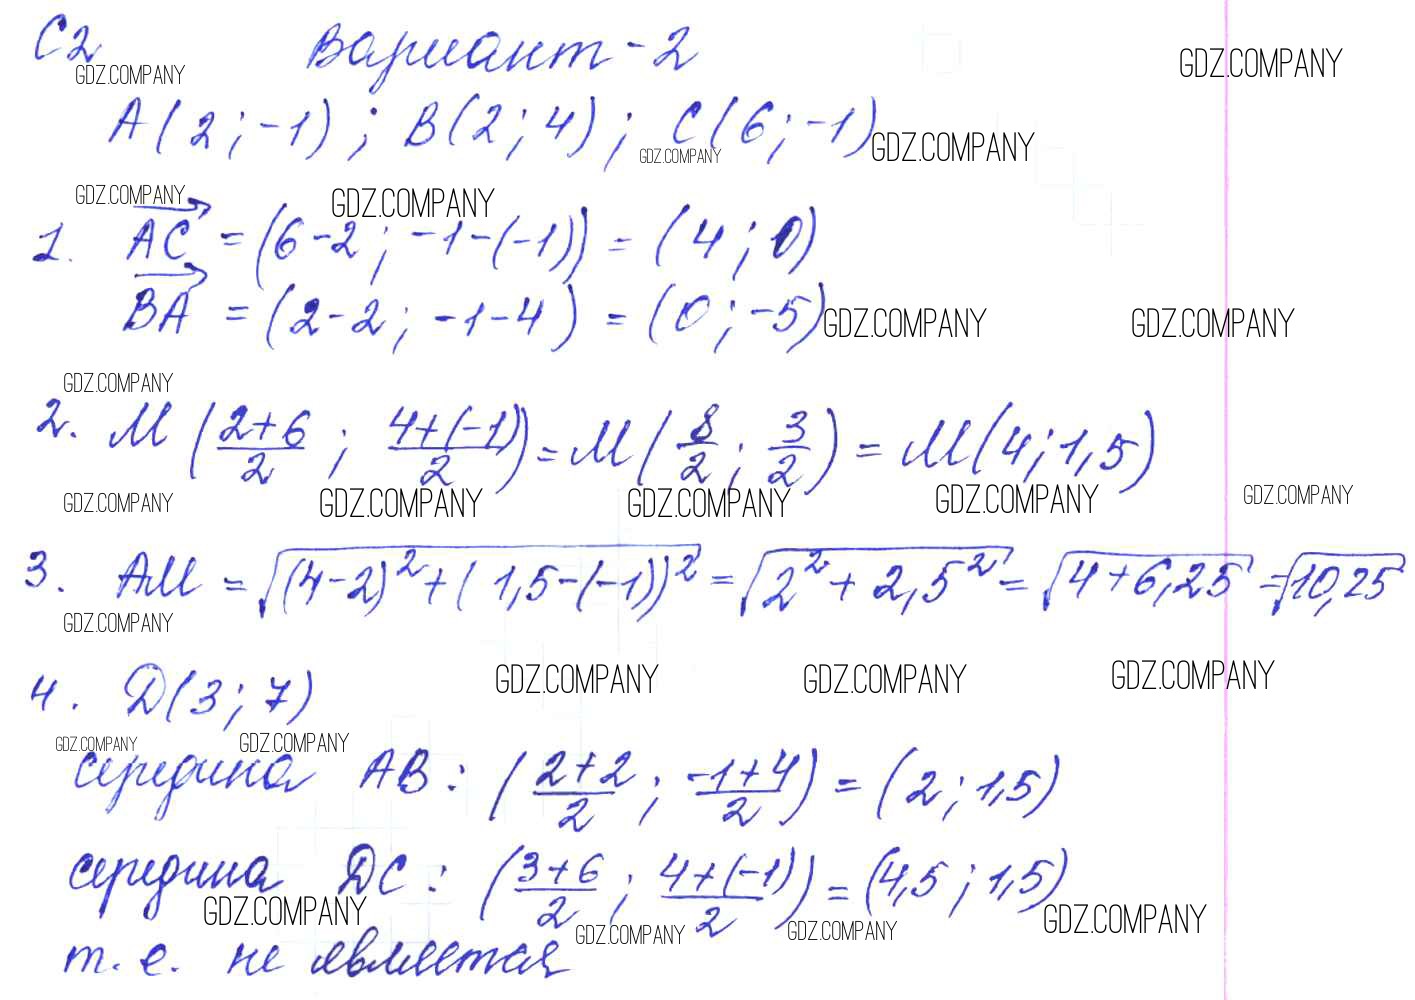 С2 Вариант-2
GDZ.COMPANY GDZ.COMPANY
А(2;-1); В(2;4); С(6;-1)
GDZ.COMPANY GDZ.COMPANY
GDZ.COMPANY GDZ.COMPANY
1. AC = (6-2; -1-(-1)) = (4;0)
BA = (2-2; -1-4) = (0;-5)
GDZ.COMPANY GDZ.COMPANY
GDZ.COMPANY
2. М((2+6)/2; (4+(-1))/2) = М(8/2; 3/2) = М(4;1,5)
GDZ.COMPANY GDZ.COMPANY GDZ.COMPANY GDZ.COMPANY GDZ.COMPANY
3. АМ = √((4-2)² + (1,5-(-1))²) = √(2² + 2,5²) = √(4+6,25) = √10,25
GDZ.COMPANY
GDZ.COMPANY GDZ.COMPANY GDZ.COMPANY
4. D(3;7)
GDZ.COMPANY GDZ.COMPANY
середина АВ: ((2+2)/2; (-1+4)/2) = (2;1,5)
середина DC: ((3+6)/2; (4+(-1))/2) = (4,5;1,5)
GDZ.COMPANY GDZ.COMPANY GDZ.COMPANY GDZ.COMPANY
т.е. не является